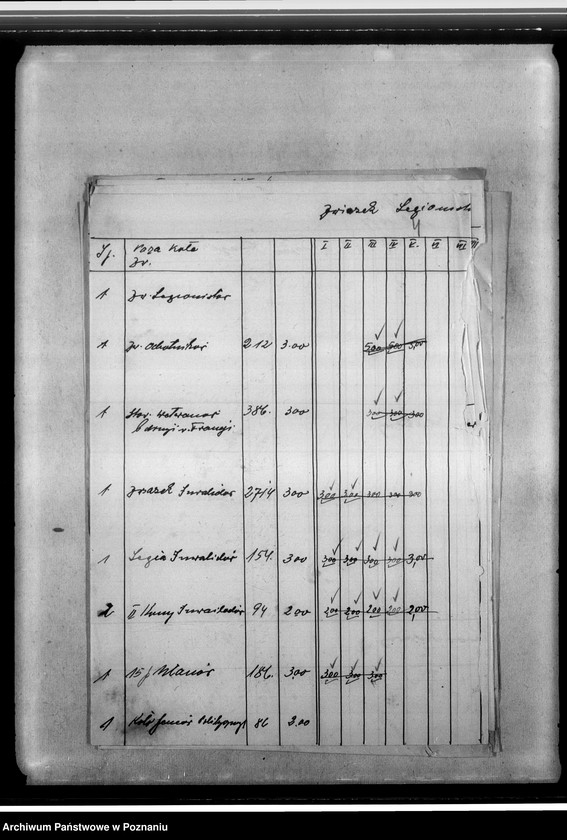 Związek Legionist
Lp. Poza Koła I II III IV V. VI VII
Zw.
1 Zw. Legionistów
1 Zw. Ochotników 212 3.00 500 500 5,00
1 Stow. Weteranów 386. 300 300 300 300
b. Armji w Francji
1 Związek Inwalidów 2714 300 300 300 300 300 300
1 Legja Inwalidów 154. 300 300 300 300 300 3,00
2 II Inwalidów 94 200 200 200 200 200 2,00
1 15 p. Ułanów 186. 300 300 300 300
1 Koło 86 3.00
Archiwum Państwowe w Poznaniu